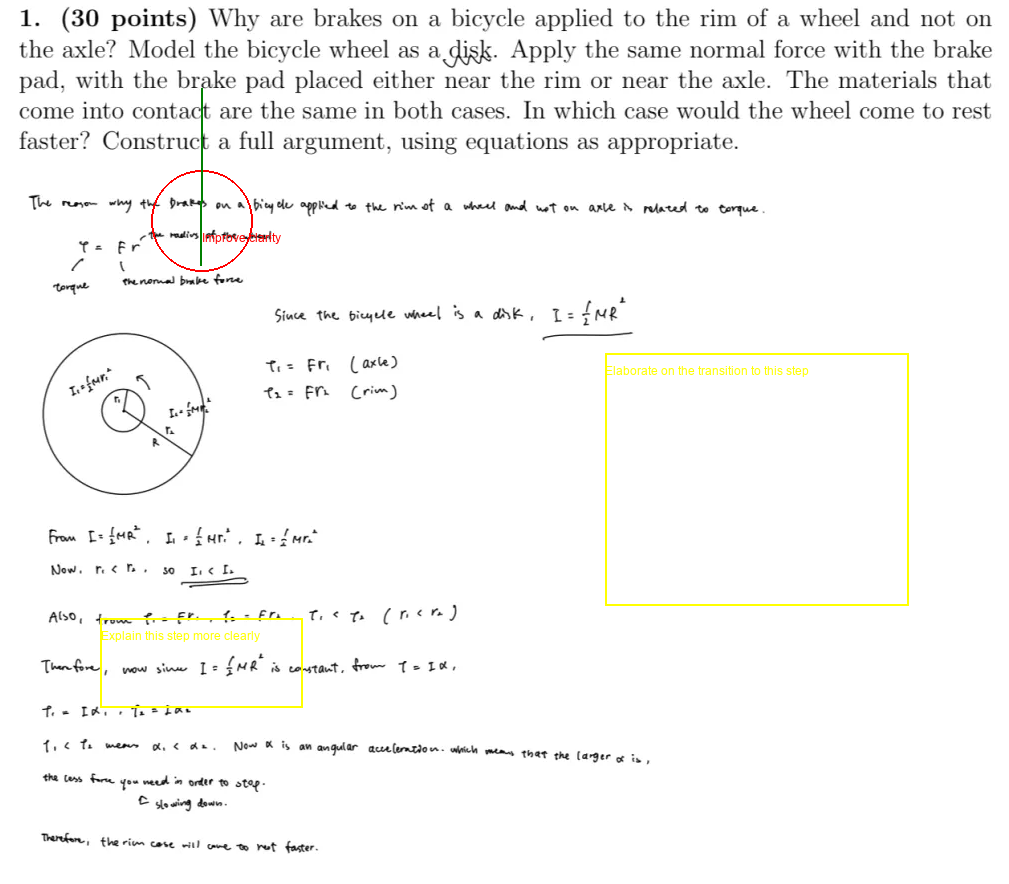 1. (30 points) Why are brakes on a bicycle applied to the rim of a wheel and not on
the axle? Model the bicycle wheel as a disk. Apply the same normal force with the brake
pad, with the brake pad placed either near the rim or near the axle. The materials that
come into contact are the same in both cases. In which case would the wheel come to rest
faster? Construct a full argument, using equations as appropriate.
The reason why the brakes on a bicycle applied to the rim of a wheel and not on axle is related to torque.
the radius of the wheel
Improve clarity
τ = Fr
torque
the normal brake force
Since the bicycle wheel is a disk, I = ½MR²
τ₁ = Fr₁ (axle)
τ₂ = Fr₂ (rim)
Elaborate on the transition to this step
I₁=½Mr₁²
r₁
I₂=½Mr₂²
r₂
R
From I=½MR², I₁ = ½Mr₁², I₂ = ½Mr₂²
Now, r₁ < r₂, so I₁ < I₂
Also, from τ₁ = Fr₁, τ₂ = Fr₂, τ₁ < τ₂ (r₁ < r₂)
Explain this step more clearly
Therefore, now since I = ½MR² is constant, from τ = Iα,
τ₁ = Iα₁, τ₂ = Iα₂
τ₁ < τ₂ means α₁ < α₂. Now α is an angular acceleration. which means that the larger α is,
the less force you need in order to stop.
slowing down.
Therefore, the rim case will come to rest faster.